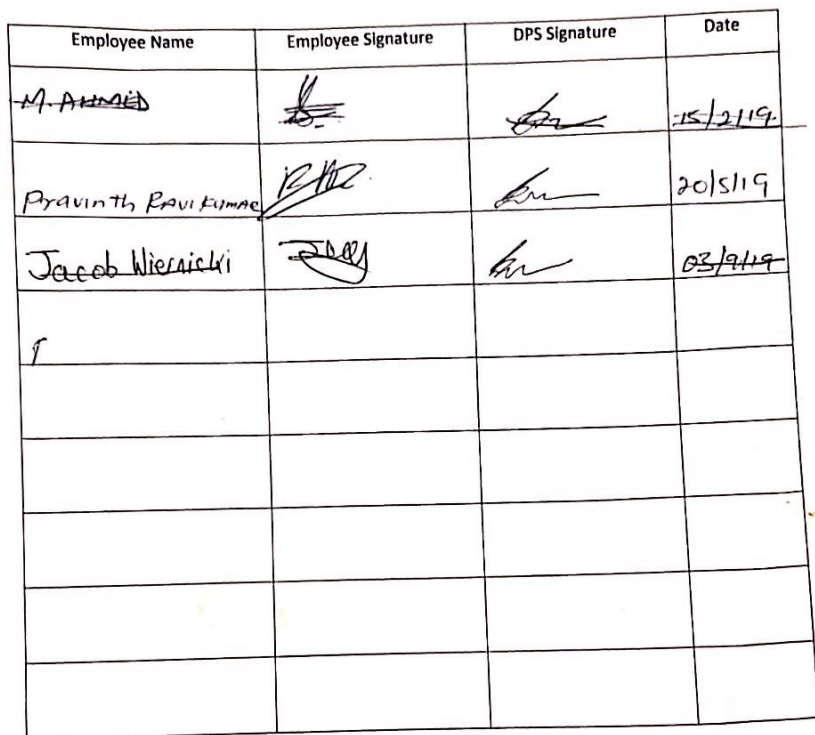 Employee Name Employee Signature DPS Signature Date
M. AHMED 15/2/19
Pravinth Ravikumar 20/5/19
Jacob Wiernicki 03/9/19